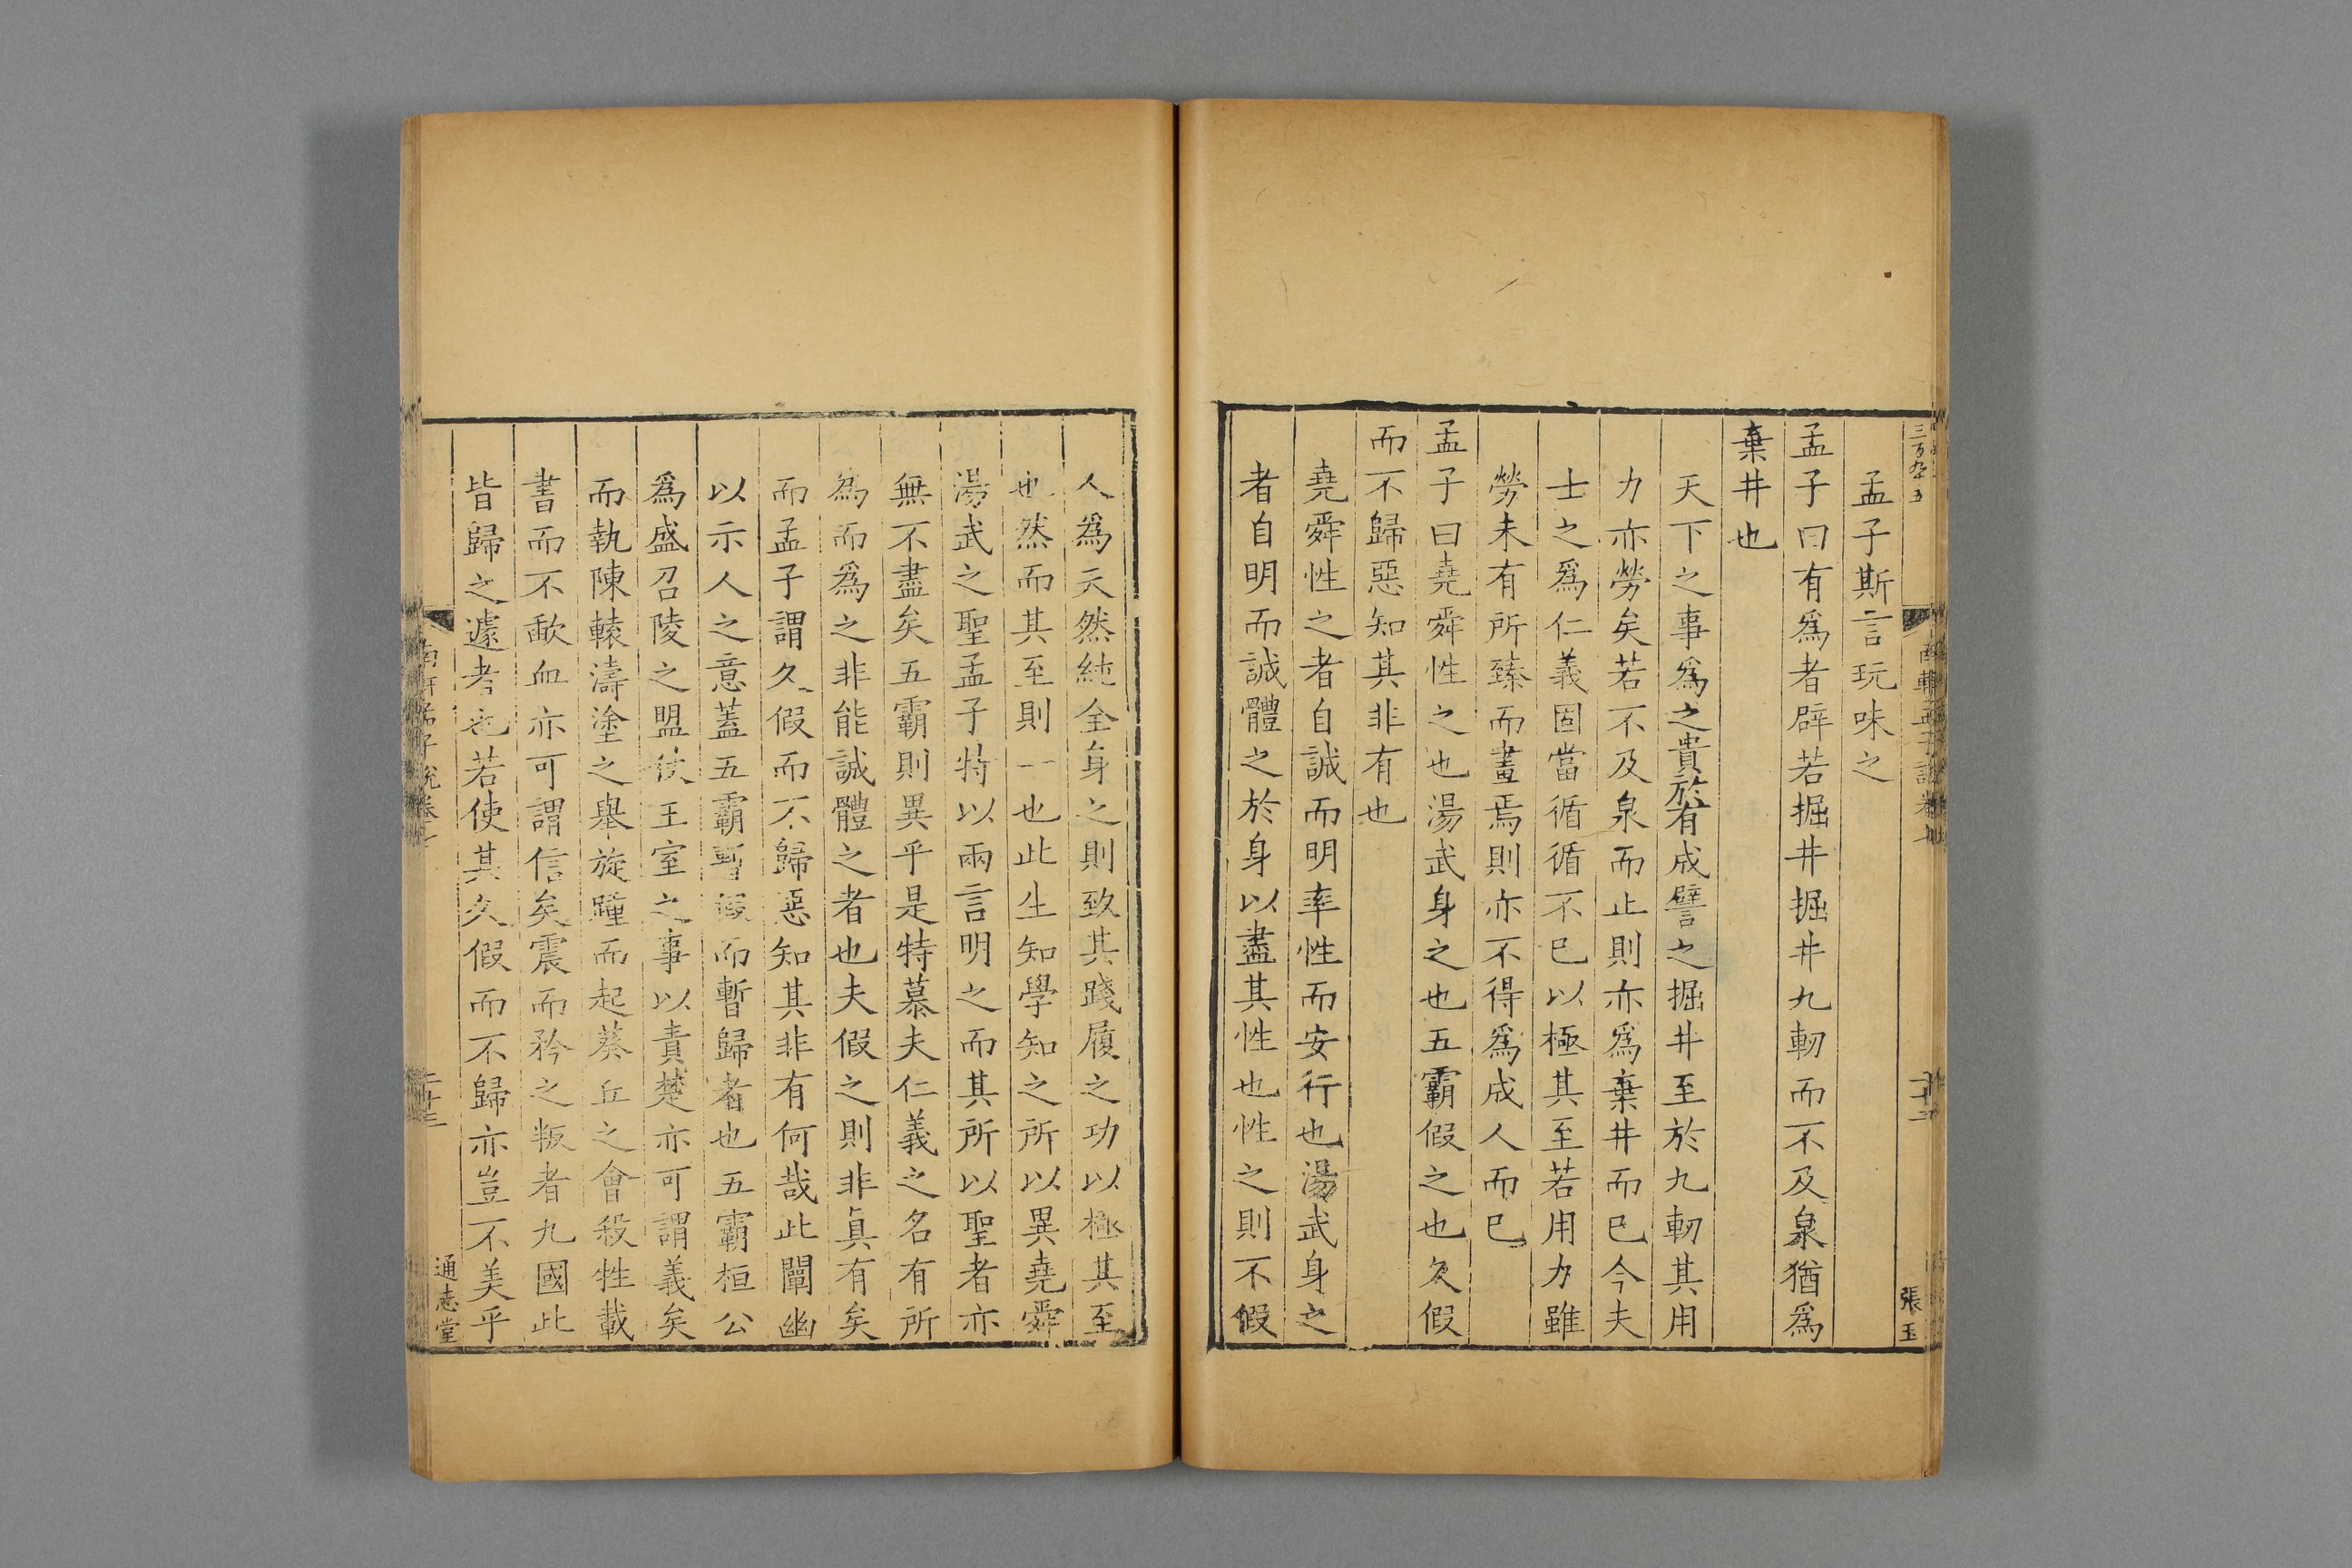 三百九十五
張玉
孟子斯言玩味之
孟子曰有爲者辟若掘井掘井九軔而不及泉猶爲
棄井也
天下之事爲之貴於有成譬之掘井至於九軔其用
力亦勞矣若不及泉而止則亦爲棄井而已今夫
士之爲仁義固當循循不已以極其至若用力雖
勞未有所臻而畫焉則亦不得爲成人而已
孟子曰堯舜性之也湯武身之也五霸假之也久假
而不歸惡知其非有也
堯舜性之者自誠而明率性而安行也湯武身之
者自明而誠體之於身以盡其性也性之則不假
人爲天然純全身之則致其踐履之功以極其至
也然而其至則一也此生知學知之所以異堯舜
湯武之聖孟子特以兩言明之而其所以聖者亦
無不盡矣五霸則異乎是特慕夫仁義之名有所
爲而爲之非能誠體之者也夫假之則非眞有矣
而孟子謂久假而不歸惡知其非有何哉此闡幽
以示人之意蓋五霸暫假而暫歸者也五霸桓公
爲盛召陵之盟仗王室之事以責楚亦可謂義矣
而執陳轅濤塗之舉旋踵而起葵丘之會殺牲載
書而不歃血亦可謂信矣震而矜之叛者九國此
皆歸之遽者也若使其久假而不歸亦豈不美乎
南軒孟子說卷七
通志堂